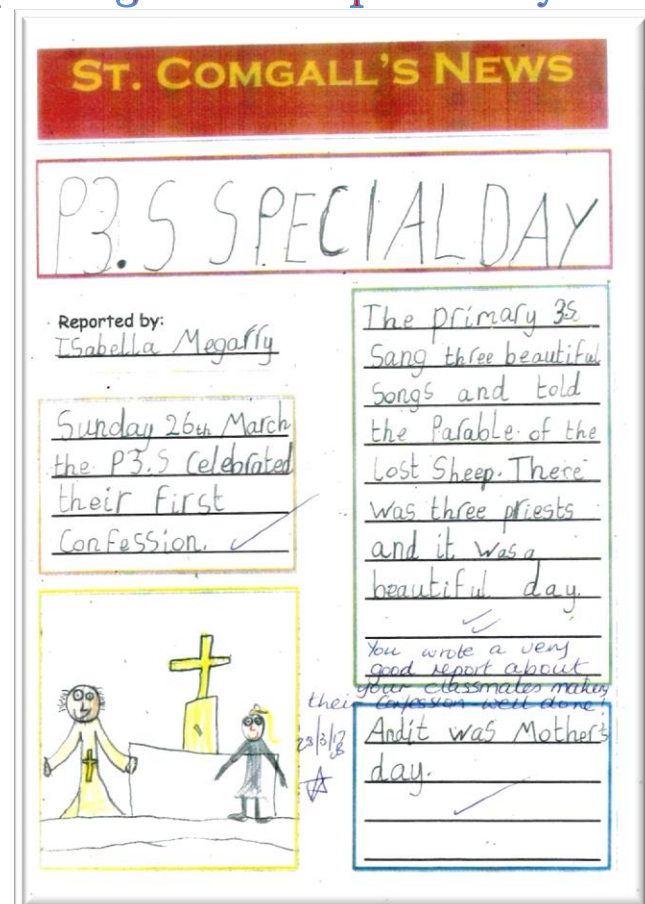 ST. COMGALL'S NEWS
P3.S SPECIAL DAY
Reported by:
Isabella Megarry
Sunday 26th March
the P3.S Celebrated
their First
Confession.
The primary 3s
Sang three beautiful
Songs and told
the Parable of the
Lost Sheep. There
was three priests
and it was a
beautiful day.
You wrote a very
good report about
your classmates making
their Confession well done!
28/3/17
And it was Mothers
day.